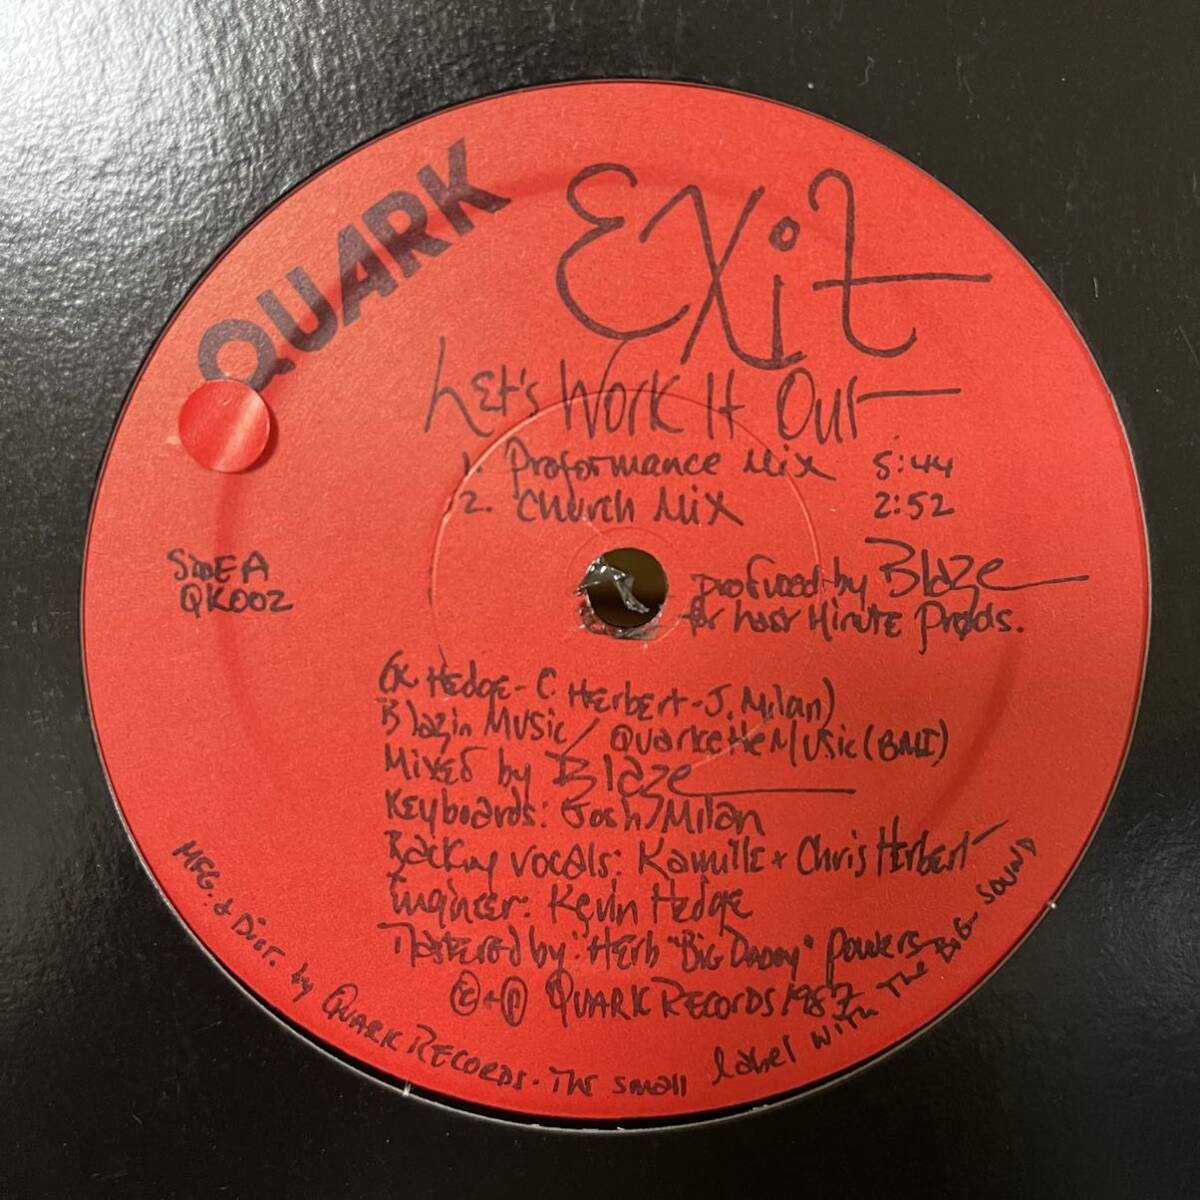 QUARK
Exit
Let's Work It Out
1. Proformance Mix 5:44
2. Church Mix 2:52
Side A
QK002
produced by Blaze
for Last Minute Prods.
(K Hedge - C. Herbert - J. Milan)
Blazin Music / Quarkette Music (BMI)
Mixed by Blaze
Keyboards: Josh Milan
Backing vocals: Kamille + Chris Herbert
Engineer: Kevin Hedge
Mastered by: Herb "Big Daddy" Powers
© + ℗ Quark Records 1987
MFG. & Dist. by Quark Records. The small label with The Big Sound